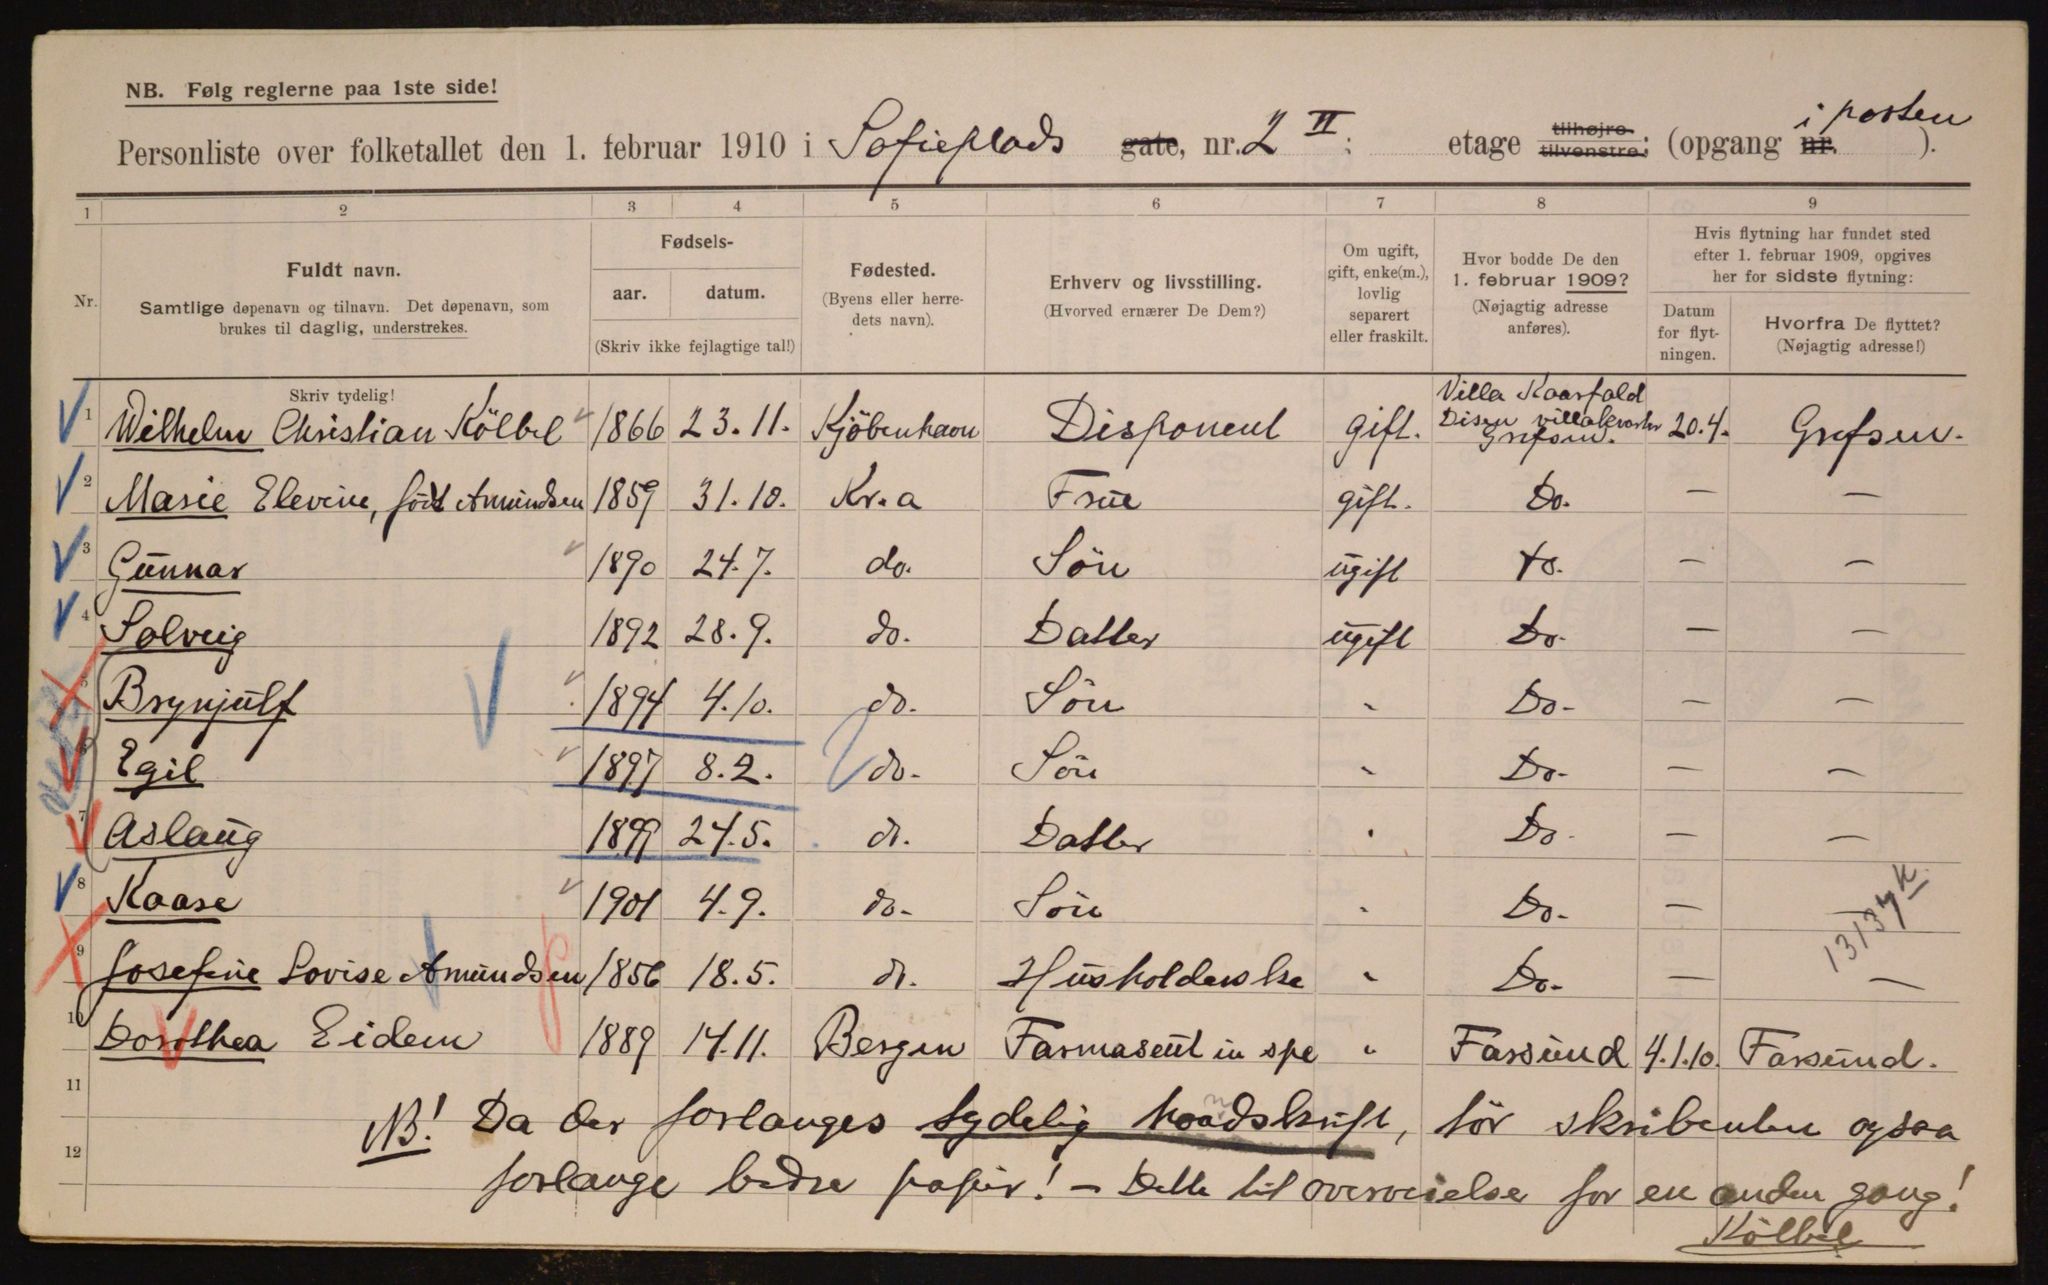 NB. Følg reglerne paa 1ste side!
Personliste over folketallet den 1. februar 1910 i Sofieplads gate, nr. 2 II; etage tilhøjre tilvenstre; (opgang nr. i porten ).
1 2 3 4 5 6 7 8 9
Nr.
Fuldt navn.
Samtlige døpenavn og tilnavn. Det døpenavn, som
brukes til daglig, understrekes.
Skriv tydelig!
Fødsels-
aar. datum.
(Skriv ikke fejlagtige tal!)
Fødested.
(Byens eller herre-
dets navn).
Erhverv og livsstilling.
(Hvorved ernærer De Dem?)
Om ugift,
gift, enke(m.),
lovlig
separert
eller fraskilt.
Hvor bodde De den
1. februar 1909?
(Nøjagtig adresse
anføres).
Hvis flytning har fundet sted
efter 1. februar 1909, opgives
her for sidste flytning:
Datum
for flyt-
ningen.
Hvorfra De flyttet?
(Nøjagtig adresse!)
1 Wilhelm Christian Kölbel 1866 23.11. Kjöbenhavn Disponent gift. Villa Kaarfald Disen villakvarter Grefsen. 20.4. Grefsen.
2 Marie Elevine, född Amundsen 1859 31.10. Kr.a Frue gift. Do. — —
3 Gunnar 1890 24.7. do. Sön ugift Do. — —
4 Solveig 1892 28.9. do. Datter ugift Do. — —
5 Brynjulf 1894 4.10. do. Sön " Do. — —
6 Egil 1897 8.2. do. Sön " Do. — —
7 Aslaug 1899 24.5. do. Datter " Do. — —
8 Kaare 1901 4.9. do. Sön " Do. — —
13137 k
9 Josefine Lovise Amundsen 1856 18.5. do. Husholderske " Do. — —
10 Dorothea Eidem 1889 14.11. Bergen Farmaseut in spe " Farsund 4.1.10. Farsund.
11 NB! Da der forlanges tydelig haandskrift, tör skribenten ogsaa
12 forlange bedre papir! — Dette til overveielse for en anden gang!
Kölbel